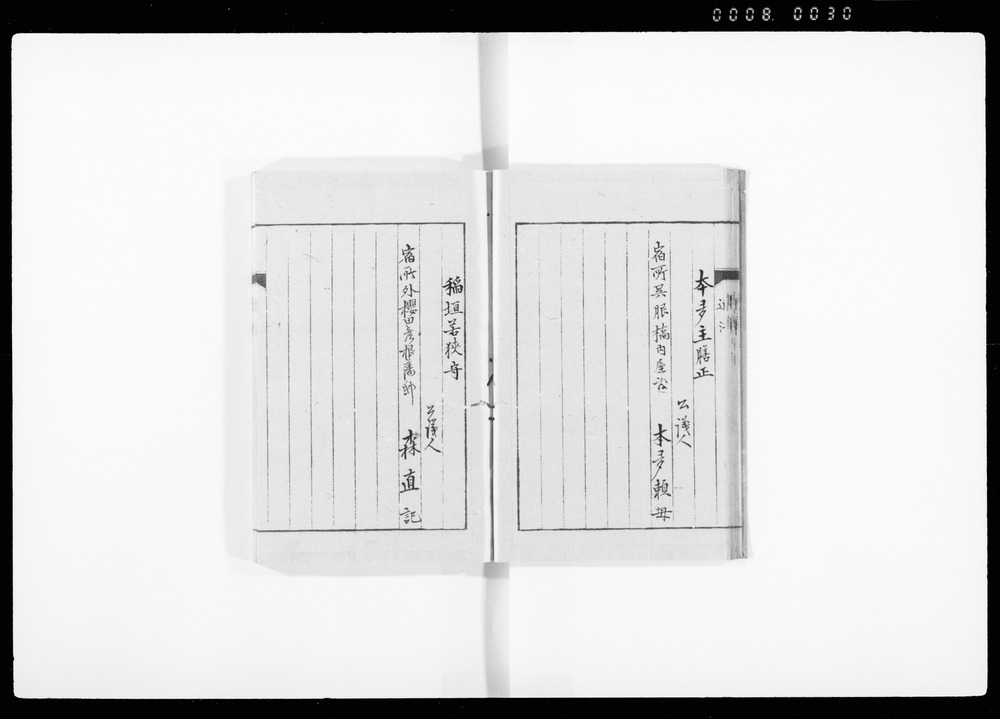 0008. 0030
本多主膳正
公議人
宿所呉服橋内屋敷
本多頼母
稲垣若狭守
公議人
宿所外櫻田彦根藩邸
森直記